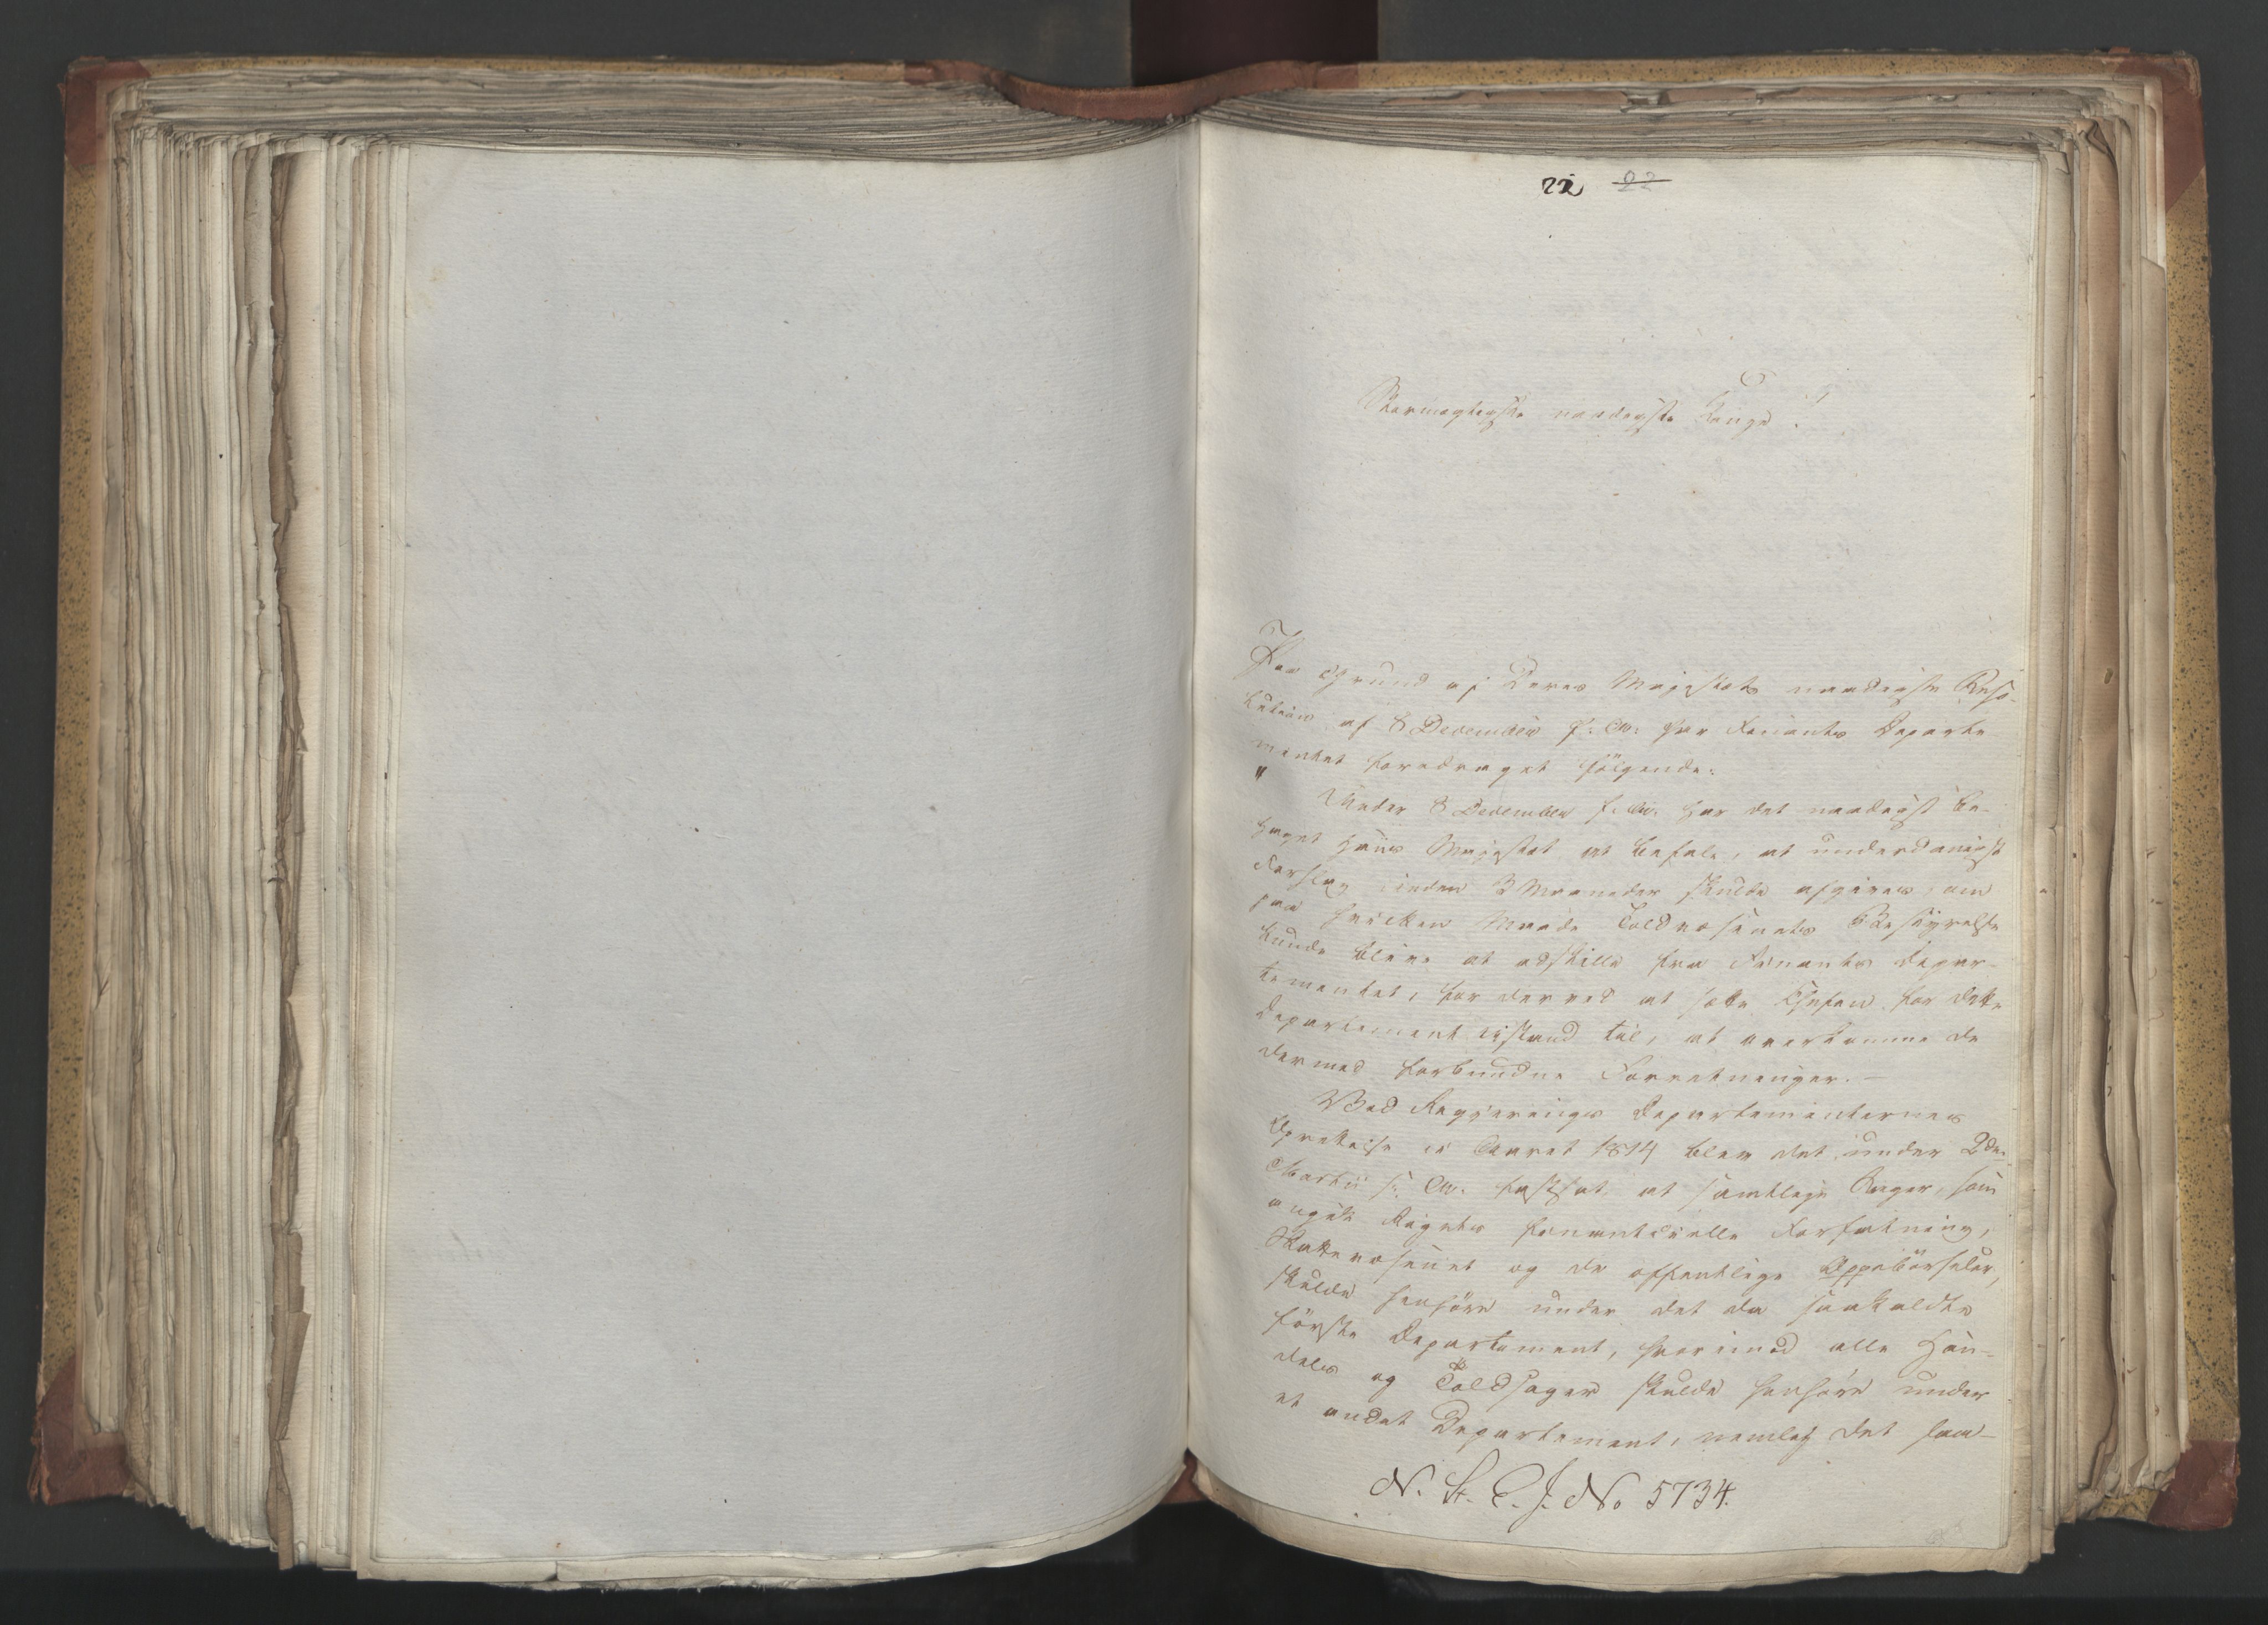 22 22
Stormægtigste naadigste Konge!
Paa Grund af Deres Majestæts naadigste Reso-
lution af 8 December f: A: har Finants Departe
mentet foredraget følgende:
" Under 8 December f. A. har det naadigst be-
haget Hans Majestæt at befale, at underdanigst
Forslag inden 3 Maaneder skulde afgives, om
paa hvilken Maade Toldvæsenets Bestyrelse
kunde blive at adskille fra Finants Depar-
tementet, for derved at sætte Chefen for dette
Departement istand til, at overkomme de
dermed forbundne Forretninger. -
Ved Regjerings Departementernes
Oprettelse i Aaret 1814 blev det under 2den
Martii s. A. fastsat, at samtlige Sager, som
angik Rigets finantcielle Forfatning,
Skattevæsenet og de offentlige Oppebörseler,
skulde henhöre under det da saakaldte
förste Departement, hvorimod alle Han-
dels og Toldsager skulde henhöre under
et andet Departement, nemlig det saa-
N. St. C. J. No 5734.